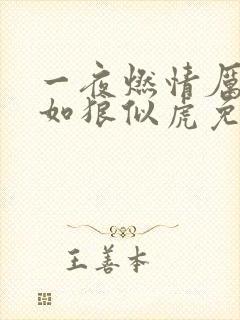 一夜燃情厉
如狼似虎免
王善本